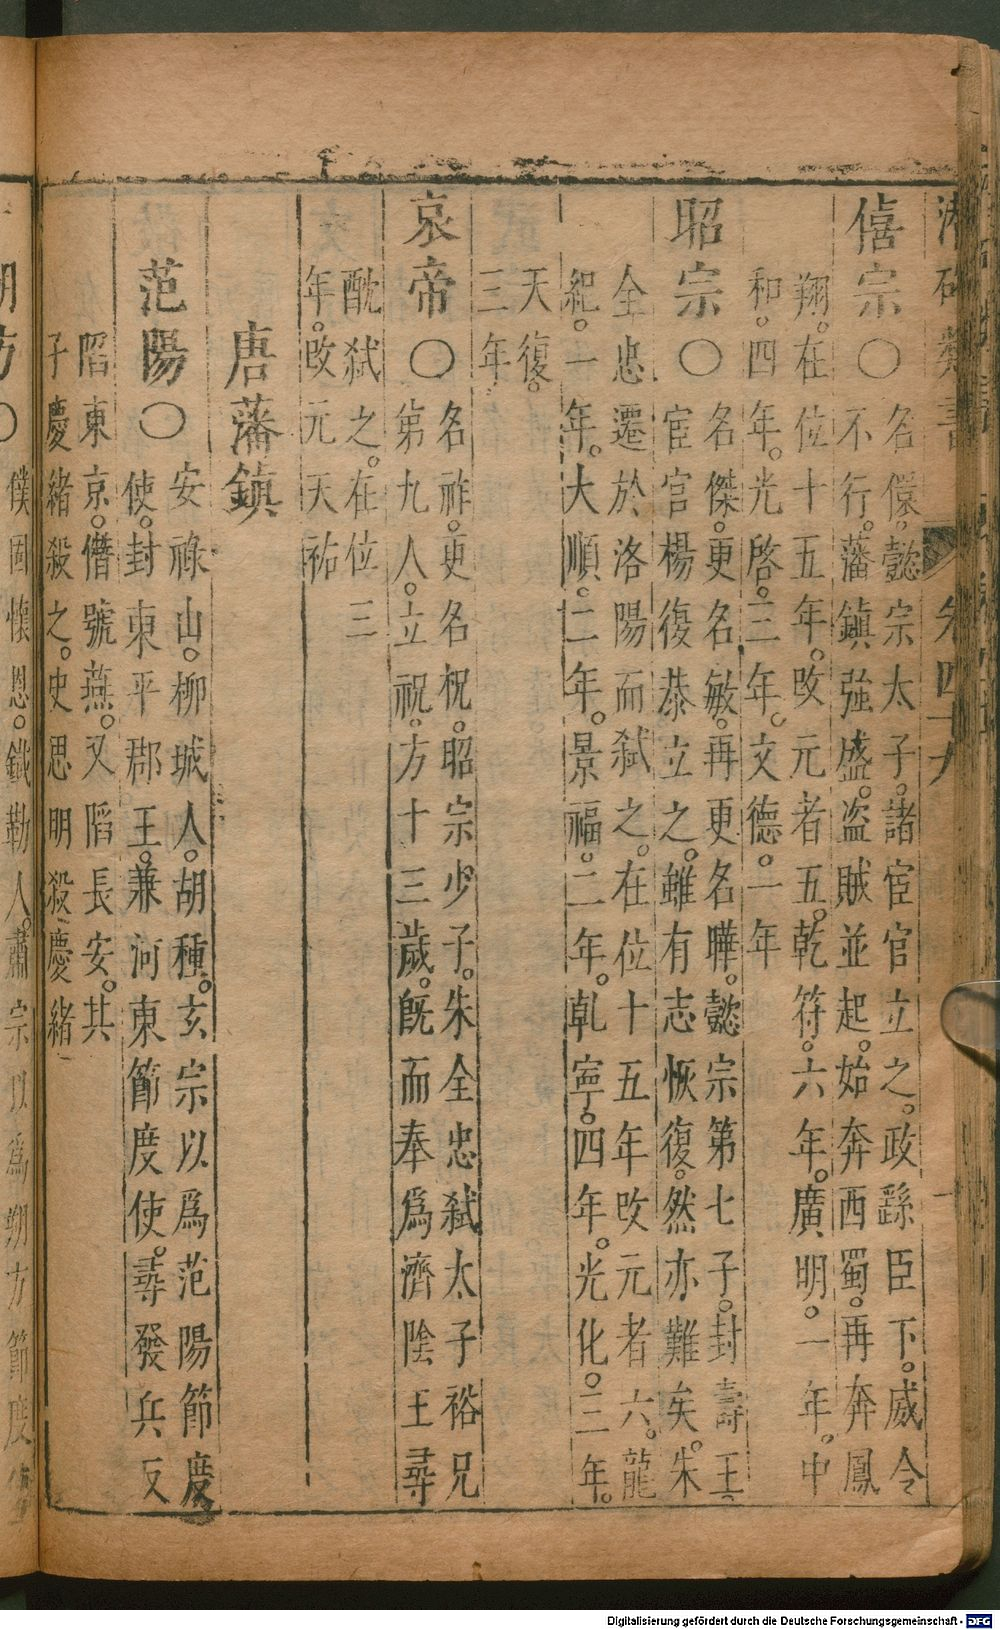 僖宗○名儇。懿宗太子。諸宦官立之。政繇臣下。威令
不行。藩鎮强盛。盗賊並起。始奔西蜀。再奔鳳
翔。在位十五年。改元者五。乾符。六年。廣明。一年。中
和。四年。光啓。三年。文德。一年
昭宗○名傑。更名敏。再更名曄。懿宗第七子。封壽王。
宦官楊復恭立之。雖有志恢復。然亦難矣。朱
全忠遷於洛陽而弑之。在位十五年改元者六。龍
紀。一年。大順。二年。景福。二年。乹寧。四年。光化。三年。
天復。
三年。
哀帝○名祚。更名柷。昭宗少子。朱全忠弑太子裕兄
第九人。立祝。方十三歲。旣而奉爲濟陰王尋
酖弑之。在位三
年。改元天祐
唐藩鎮
范陽○安祿山。柳城人。胡種。玄宗以爲范陽節度
使。封東平郡王。兼河東節度使。尋發兵反
䧟東京。僭號燕。又䧟長安。其
子慶緒殺之。史思明殺慶緒
○僕固懷恩。鐵勒人。肅宗以爲朔方節度
Digitalisierung gefördert durch die Deutsche Forschungsgemeinschaft - DFG